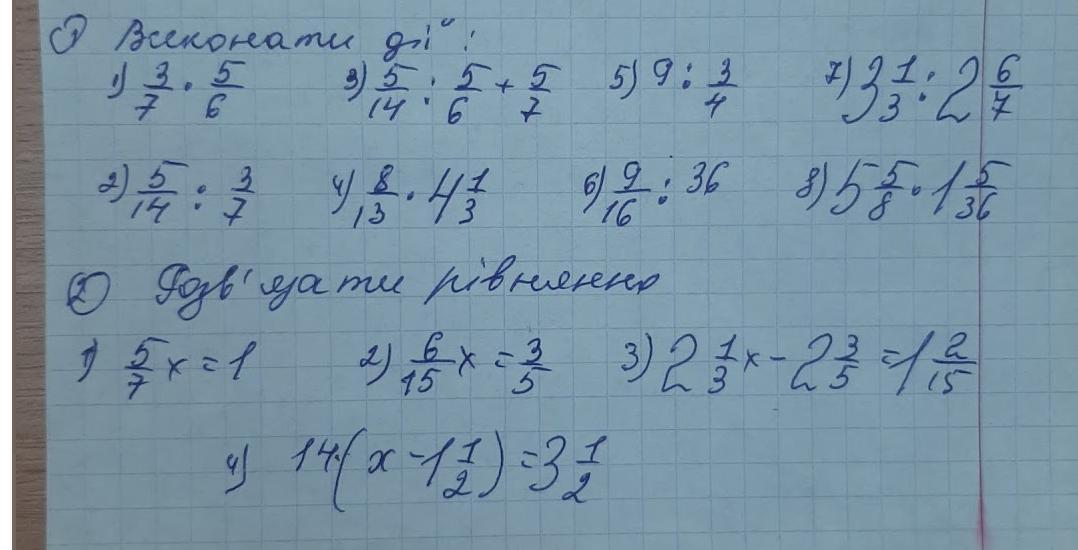 ① Виконати дії:
1) 3/7 · 5/6 3) 5/14 : 5/6 + 5/7 5) 9 : 3/4 7) 3 1/3 : 2 6/7
2) 5/14 : 3/7 4) 8/13 · 4 1/3 6) 9/16 : 36 8) 5 5/8 · 1 5/36
② Розв'язати рівняння
1) 5/7 x = 1 2) 6/15 x = 3/5 3) 2 1/3 x - 2 3/5 = 1 2/15
4) 14·(x - 1 1/2) = 3 1/2